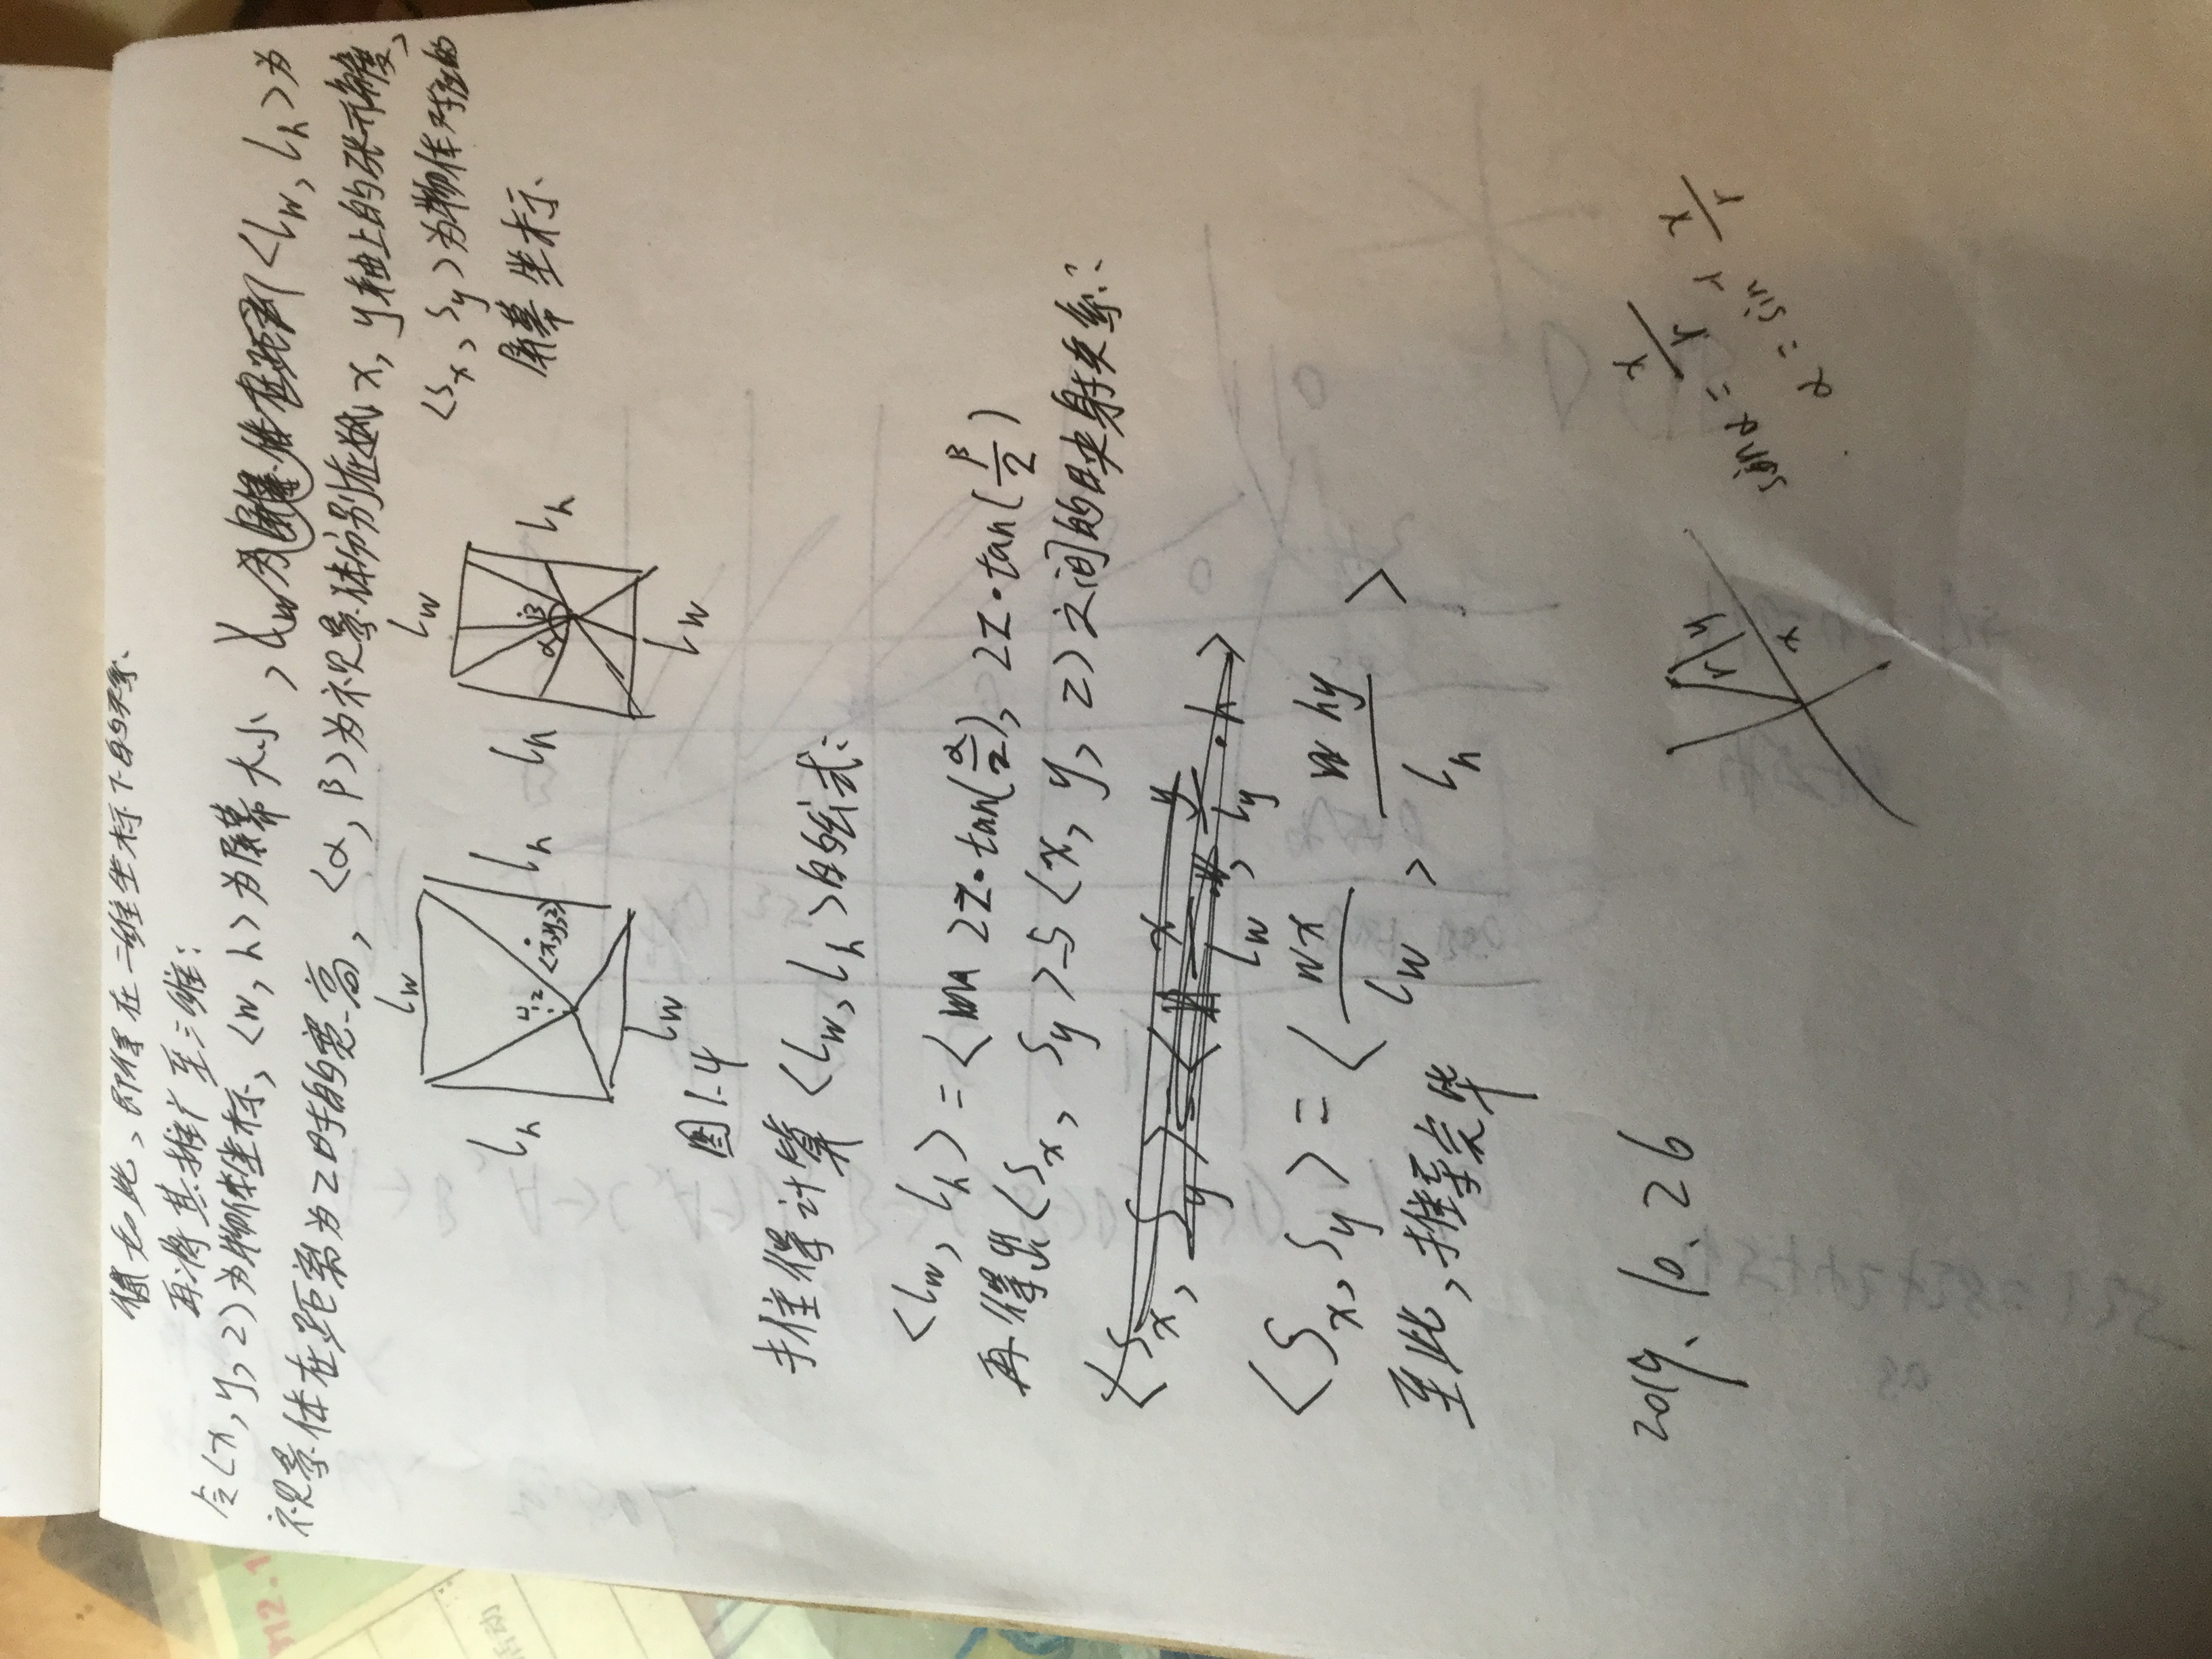 如此,即得在二维坐标下的关系.
再将其推广至三维:
令<x, y, z>为物体坐标, <w, h>为屏幕大小, <lw, lh>为
视景体在距离为z时的宽高, <α, β>为视景体分别在 x, y轴上的张开角度,
<Sx, Sy>为物体对应的
屏幕坐标.
lw
lh
lh
z
<x,y,z>
lw
图1-4
lw
lh
α
β
lh
lw
推得计算<lw, lh>的公式:
<lw, lh> = < 2z·tan(α/2), 2z·tan(β/2)
再得出<Sx, Sy>与<x, y, z>之间的映射关系:
<Sx, Sy> = < x/lw ·w, y/ly ·h>
<Sx, Sy> = < wx/lw , hy/lh >
至此,推导完毕
2019. 10. 26
r
y
x
sinα = x/r
α = sin⁻¹ x/r
活动